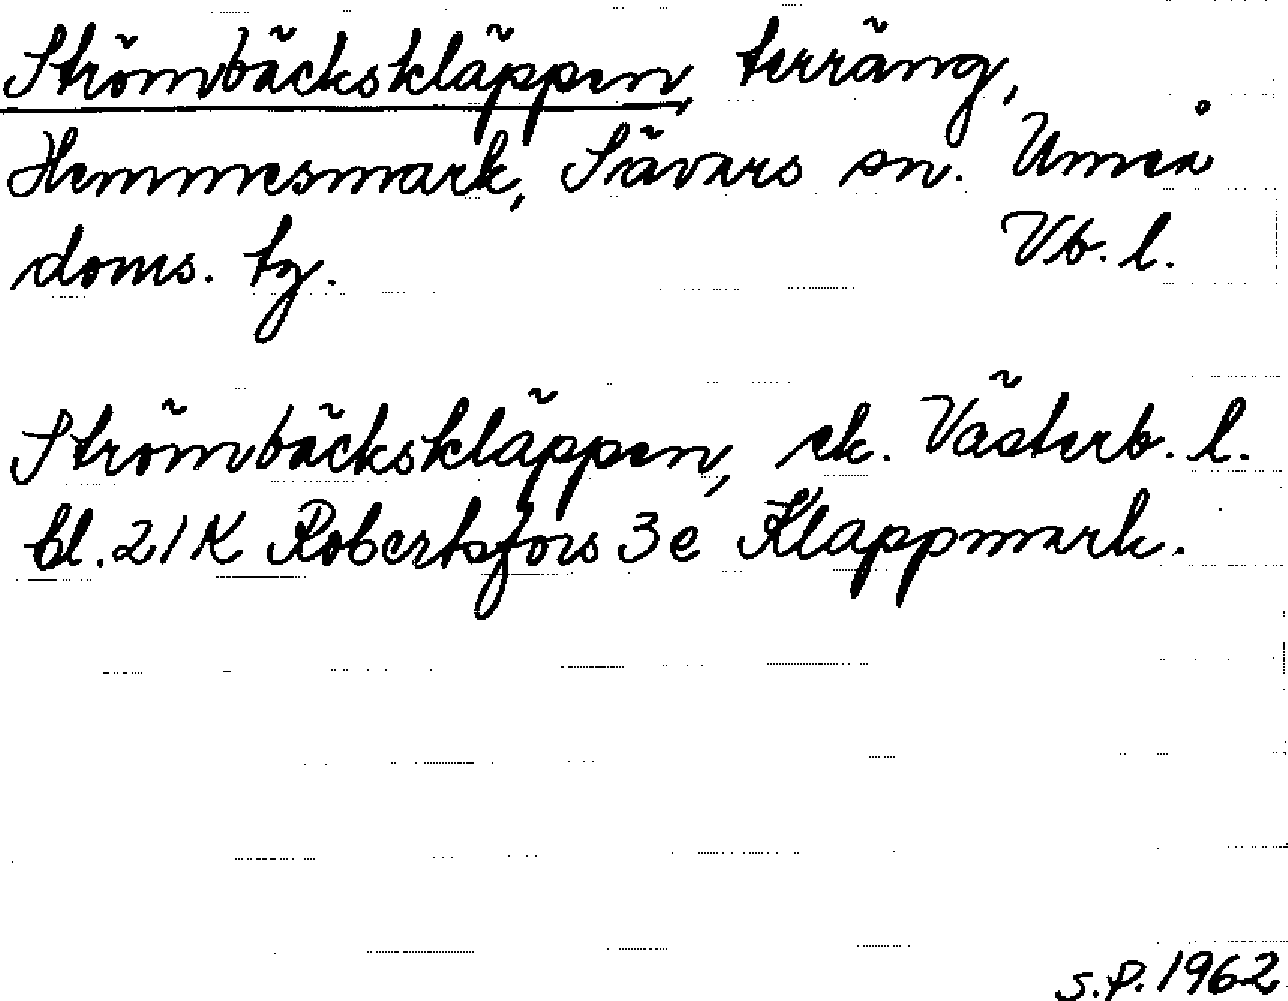 Strömbäckskläppen, terräng,
Hemmesmark, Sävars sn. Umeå
doms. tg. Vb. l.
Strömbäckskläppen, ek. Västerb. l.
bl. 21K Robertsfors 3e Klappmark.
S.P. 1962